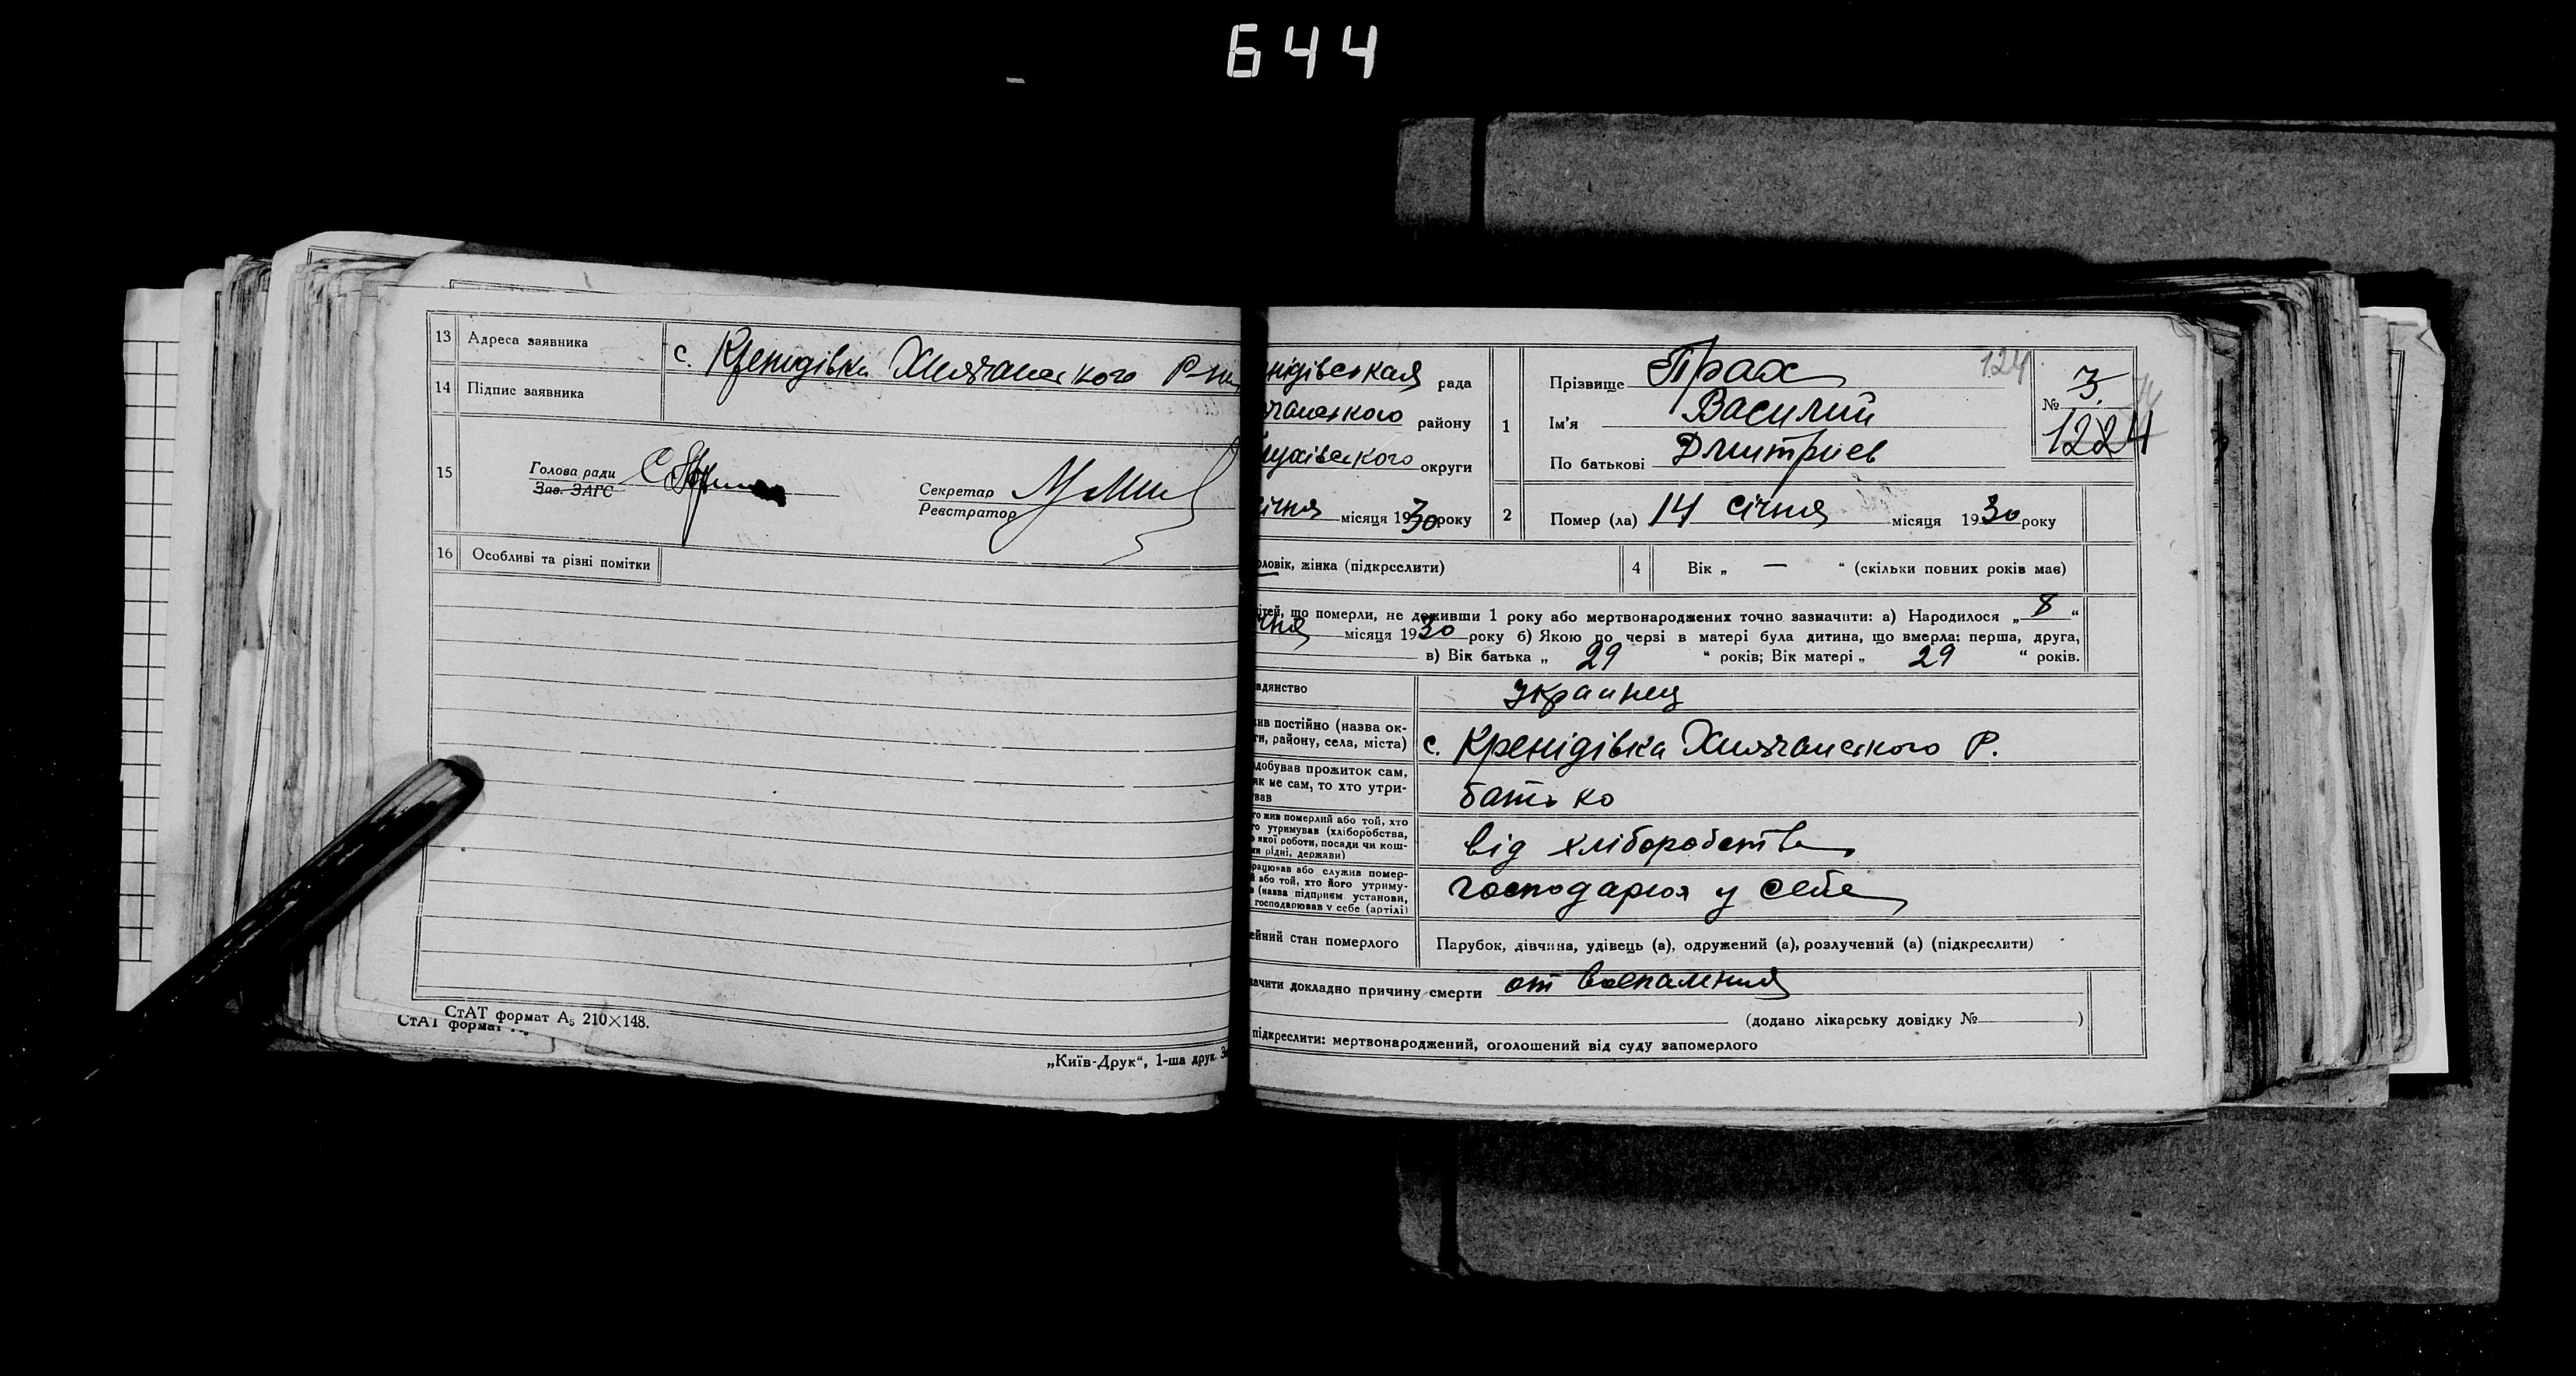 644
13 Адреса заявника с. Кренидівка Хильчанского Р-на
14 Підпис заявника
15 Голова ради
Зав. ЗАГС
Секретар
Реєстратор
16 Особливі та різні помітки
СтАТ формат А5 210×148.
СтАТ формат
„Київ-Друк“, 1-ша друк. За
нідівская рада
чанского району
лухівского округи
ічня місяця 1930 року
1 Прізвище Прах
Ім'я Василий
По батькові Дмитриев
124
№ 3.
1224
2 Помер (ла) 14 січня місяця 1930 року
оловік, жінка (підкреслити)
4 Вік „ — “ (скільки повних років мав)
ітей, що померли, не доживши 1 року або мертвонароджених точно зазначити: а) Народилося „ 8 “
чня місяця 1930 року б) Якою по черзі в матері була дитина, що вмерла: перша, друга,
в) Вік батька „ 29 “ років; Вік матері „ 29 “ років.
адянство украинец
ив постійно (назва ок-
ги, району, села, міста) с. Кренідівка Хильчанского Р.
добував прожиток сам,
як не сам, то хто утри-
вав батько
го жив померлий або той, хто
го утримував (хліборобства,
якої роботи, посади чи кош-
ми рідні, держави) від хліборобства
рацював або служив помер-
й або той, хто його утриму-
в (назва підприєм установи,
господарював у себе (артілі) господарюя у себе
ейний стан померлого Парубок, дівчина, удівець (а), одружений (а), розлучений (а) (підкреслити)
начити докладно причину смерти от воспаления
(додано лікарську довідку № )
підкреслити: мертвонароджений, оголошений від суду запомерлого